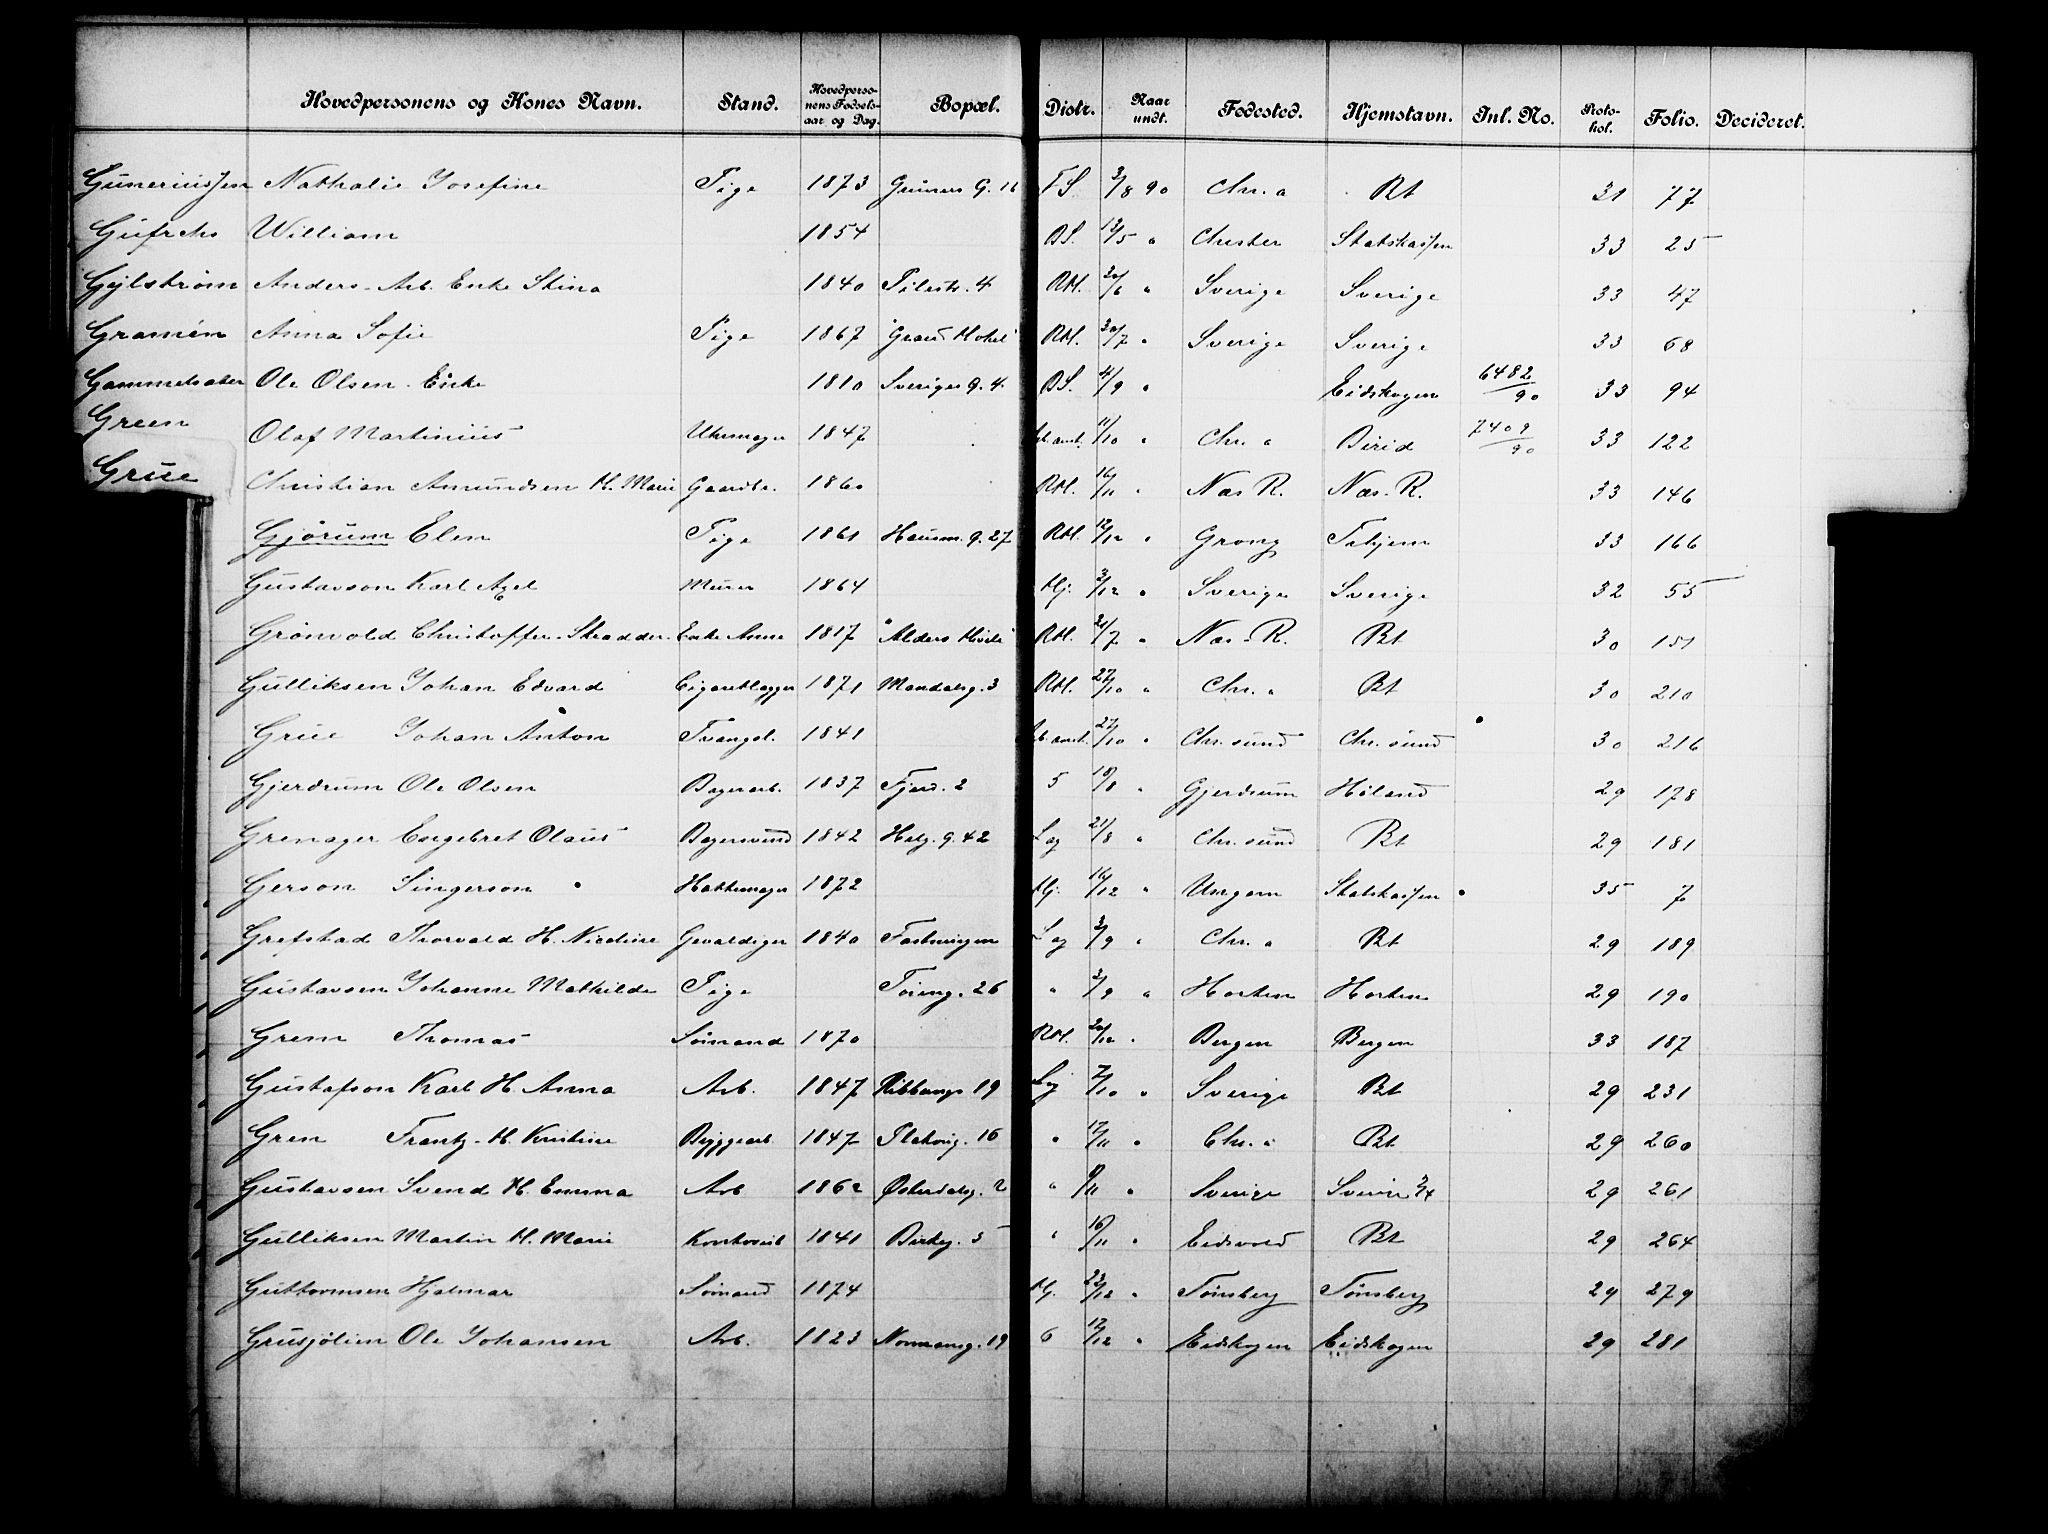 Hovedpersonens og Kones Navn. Stand. Hovedpersonens Fødselsaar og Dag. Bopæl. Distr. Naar undt. Fødested. Hjemstavn. Inl. No. Protokol. Folio. Decideret.
Guneriussen Nathalie Josefine Pige 1873 Grüners G. 16 F S. 2/8 90 Chr.a Bt 31 77
William 1854 BS. 13/5 " Chester Statskassen 33 25
Gylstrøm Anders Arb. Enke Stina 1840 Pilestr. 4 RH. 20/6 " Sverige Sverige 33 47
Gramén Anna Sofie Pige 1867 "Grand Hotel" RH. 30/7 " Sverige Sverige 33 68
Gammelsæter Ole Olsen Enke 1810 Sveriges g. 4 BS. 4/9 " Eidskogen 6482/90 33 94
Green Olaf Martinius Uhrmager 1847 11/10 " Chr.a Birid 7409/90 33 122
Grue Christian Amundsen H. Marie Gaardbr. 1860 RH. 16/11 " Næs R. Næs. R. 33 146
Gjørum Elen Pige 1861 Hausm. g. 27 RH. 12/12 " Grong 33 166
Gustavson Karl Axel Murer 1864 Hj. 3/12 " Sverige Sverige 32 55
Grønvold Christoffer Skrædder Enke Anne 1817 "Alders Hvile" RH. 21/7 " Næs R. Bt 30 151
Gulliksen Johan Edvard Cigaretlægger 1871 Mandalsg. 3 RH. 27/10 " Chr.a Bt 30 210
Grue Johan Anton Tvangsl. 1841 27/10 " Chr.sund Chr.sund 30 216
Gjerdrum Ole Olsen Bagerarb. 1837 Fjerd. 2 5 18/8 " Gjerdrum Høland 29 178
Grenager Engebret Olaus Bagersvend 1842 Helg. g. 42 Lag 21/8 " Chr.sund Bt 29 181
Gerson Singerson Hattemager 1872 Hj. 16/12 " Ungarn Statskassen 35 7
Grefstad Thorvald H. Nicoline Gevaldiger 1840 Fæstningen Lag 3/9 " Chr.a Bt 29 189
Gustavsen Johanne Mathilde Pige Tøieng. 26 " 3/9 " Horten Horten 29 190
Grem Thomas Sømand 1870 RH. 20/12 " Bergen Bergen 33 187
Gustafson Karl H. Anna Arb. 1847 19 Lag 7/10 " Sverige Bt 29 231
Gren Frantz H. Kristine Byggearb 1847 Platoug. 16 " 17/11 " Chr.a Bt 29 260
Gustavsen Svend H. Emma Arb 1862 Østerdalsg. 2 " 9/11 " Sverige 29 261
Gulliksen Martin H. Marie Kontorist 1841 Birkg. 5 " 10/11 " Eidsvold Bt 29 264
Guttormsen Hjalmar Sømand 1874 Hj. 23/12 " Tønsberg Tønsberg 29 279
Grusjølien Ole Johansen Arb. 1823 Normansg. 19 6 12/12 " Eidskogen Eidskogen 29 281